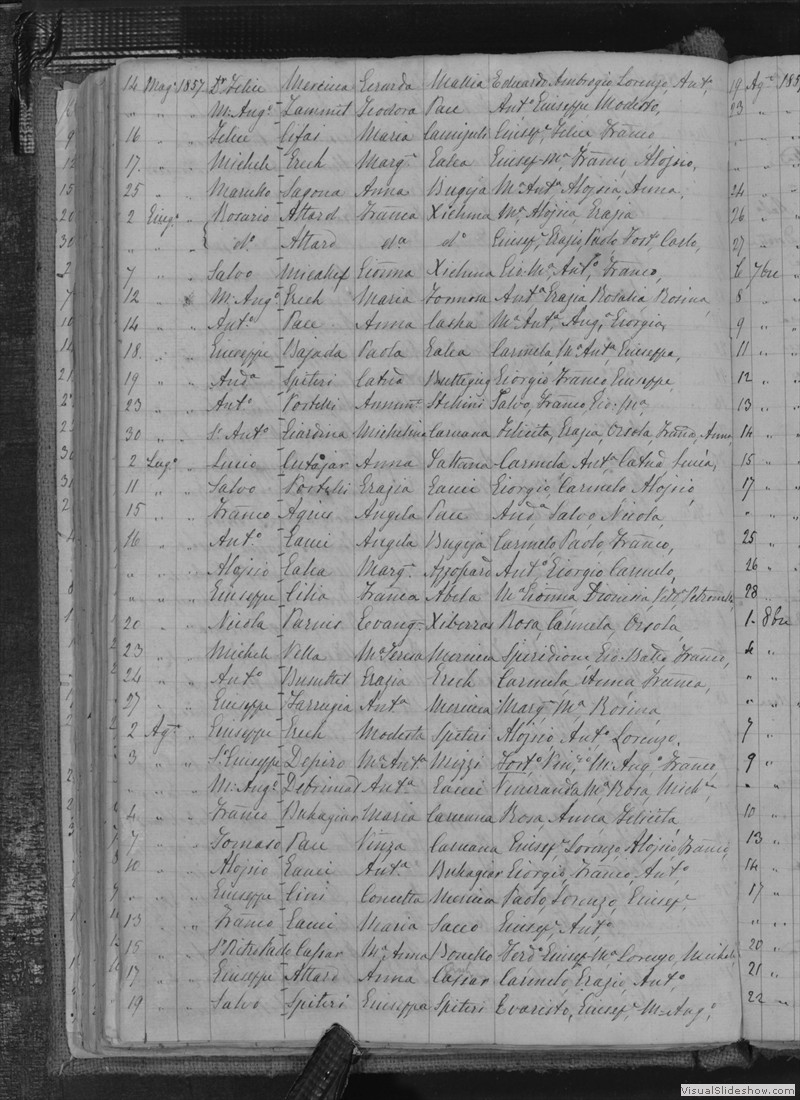 14 Mag.º 1857 Dr Felice Mercieca Gerarda Mallia Eduardo Ambrogio Lorenzo, Ant.º
" " " M. Ang.º Zammit Teodora Pace Ant.º Giuseppe Modesto,
16 " " Felice Cefai Maria Camizuli Giusep.e Felice Franco
17 " " Michele Grech Marg.ª Galea Giusep. M.ª, Franc, Alojsio,
25 " " Saguna Anna Bugeja M.ª Ant.ª Alojsia, Anna,
2 Giug.º " Rosario Attard Franca Xichma M.ª Alojsia Grazia
" " " d.º Attard d.ª d.º Giusep.e Grazio Paolo Fort.º Carlo,
7 " " Salvo Micallef Giõnna Xichma Gio. M.ª, Ant.º, Franco,
12 " " M. Ang.º Grech Maria Formosa Ant.ª Grazia Rosalia Rosina,
14 " " Ant.º Pace Anna Casha M.ª Ant.ª Ang.ª Giorgia,
18 " " Giuseppe Bajada Paola Galea Carmela, M.ª Ant.ª Giuseppa,
19 " " And.ª Spiteri Catña Buttigieg Giorgio Franco Giuseppe,
23 " " Ant.º Portelli Annun.ª Stellini Salvo, Franco Gio. M.ª
30 " " Sr Ant.º Giardina Michelina Caruana Felicita, Grazia, Orsola, Franca, Anna,
2 Lug.º " Lucio Cutajar Anna Saltuna Carmela Ant.ª Catña Lucia,
11 " " Salvo Portelli Grazia Gauci Giorgio, Carmelo Alojsio,
15 " " Franco Agius Angela Pace And.ª Salvo, Nicola,
16 " " Ant.º Gauci Angela Bugeja Carmelo Paolo, Franco,
" " " Alojsio Galea Marg.ª Azzopardo Ant.º Giorgio Carmelo,
" " " Giuseppe Cilia Franca Abela M.ª Giõnna, Dionisia,
20 " " Nicola Parnis Evang.ª Xiberras Rosa, Carmela, Orsola,
23 " " Michele Vella M.ª Teresa Mercieca Speridione Gio. Batta Franco,
24 " " Ant.º Busuttil Grazia Grech Carmela, Anna, Franca,
27 " " Giuseppe Farrugia Ant.ª Mercieca Marg.ª M.ª Rosina
2 Ag.º " Giuseppe Grech Modesta Spiteri Alojsio, Ant.º Lorenzo,
3 " " Sr Giuseppe Depiro M.ª Ant.ª Mizzi Fort.º Vin.zo M. Ang.º, Franco,
" " " M. Ang.º Debrincat Ant.ª Gauci Veneranda M.ª Rosa, Mich.ª,
4 " " Franco Buhagiar Maria Caruana Rosa, Anna Felicita
7 " " Tomaso Pace Vinza Caruana Giusep.e Lorenzo, Alojsio Franco,
10 " " Alojsio Gauci Ant.ª Buhagiar Giorgio, Franco, Ant.º,
" " " Giuseppe Cini Concetta Mercieca Paolo, Lorenzo, Giusep.e
13 " " Franco Gauci Maria Sacco Giusep.e Ant.º
15 " " Cassar M.ª Anna Bonello Ferd.º Giusep. M.ª Lorenzo, Michele,
17 " " Giuseppe Attard Anna Cassar Carmelo, Grazio, Ant.º
19 " " Salvo Spiteri Giuseppa Spiteri Evaristo, Giusep.e M. Ang.º
19 Ag.º 1857
23 "
" "
" "
24 "
26 "
27 "
6 7bre
8 "
9 "
11 "
12 "
13 "
14 "
15 "
17 "
" "
25 "
26 "
28 "
1 8bre
4 "
" "
" "
7 "
9 "
" "
10 "
13 "
14 "
17 "
" "
20 "
21 "
22 "
VisualSlideshow.com